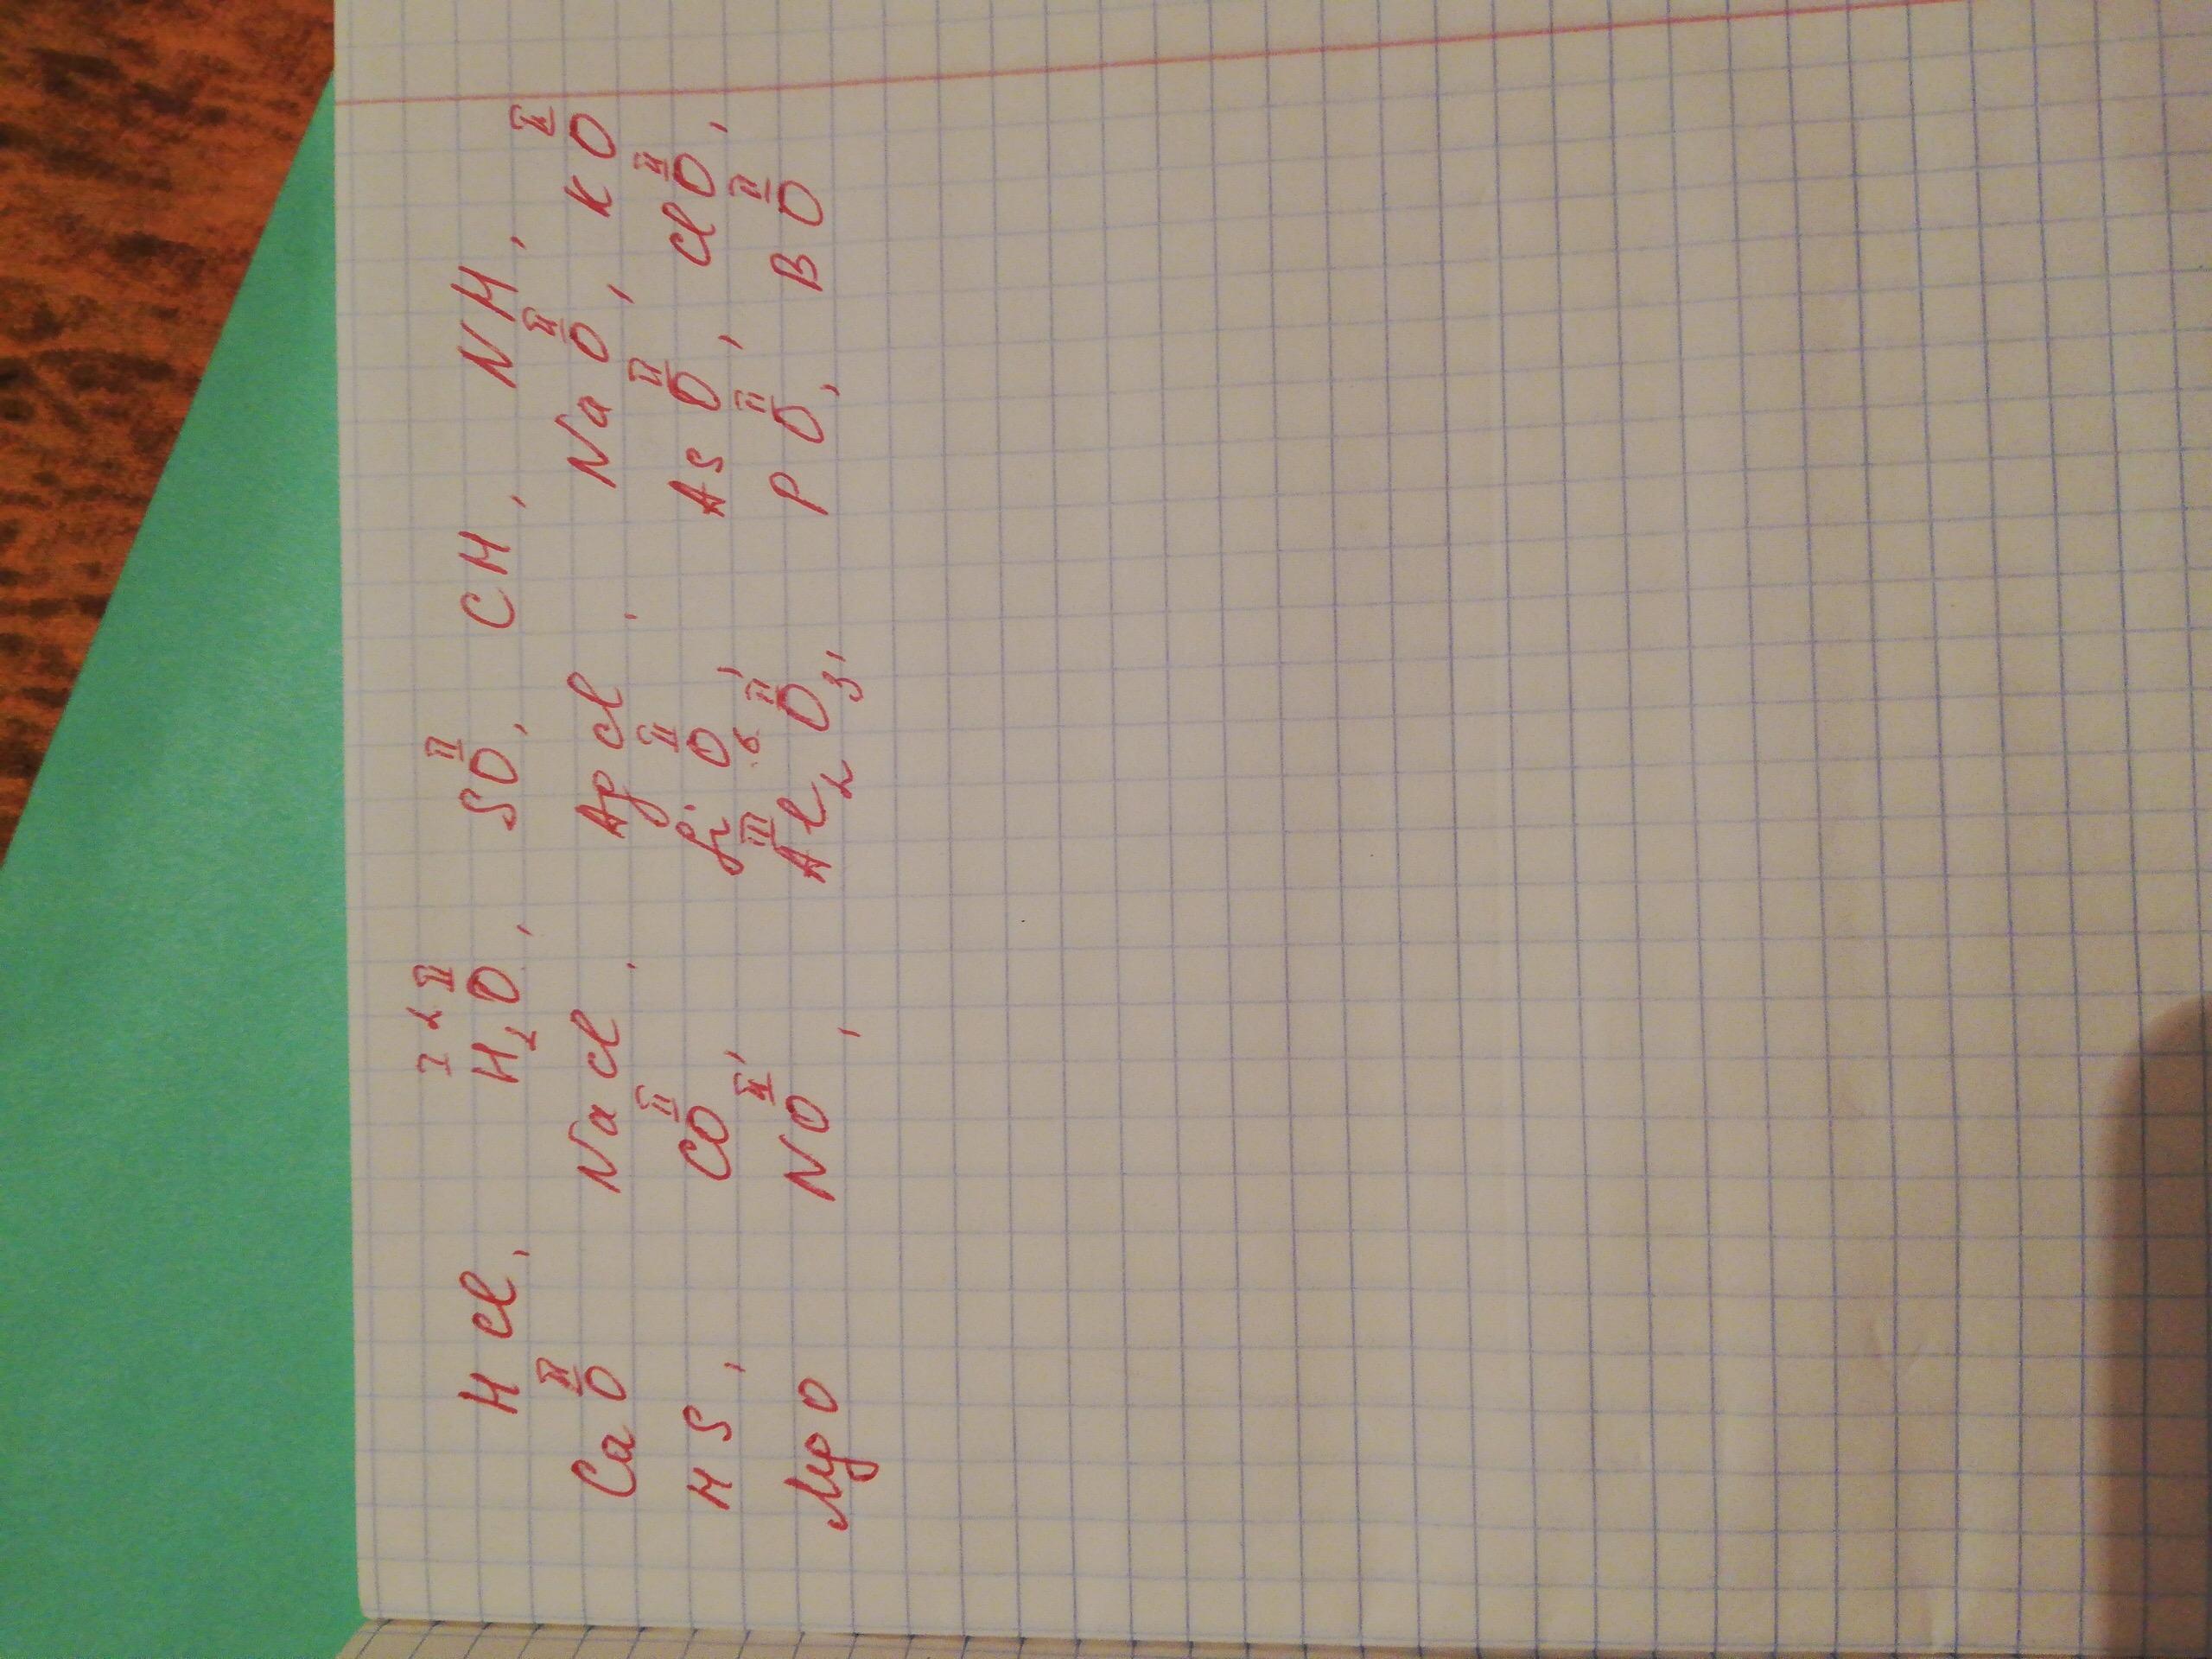 H Cl, I 2 II H₂O, II SO, CH, NH,
Ca II O Na Cl, Ag Cl, Na II O, K II O
H S, C II O, Si II O, As II O, Cl II O,
Mg O N II O, III Al₂ 6 II O₃, P II O, B II O